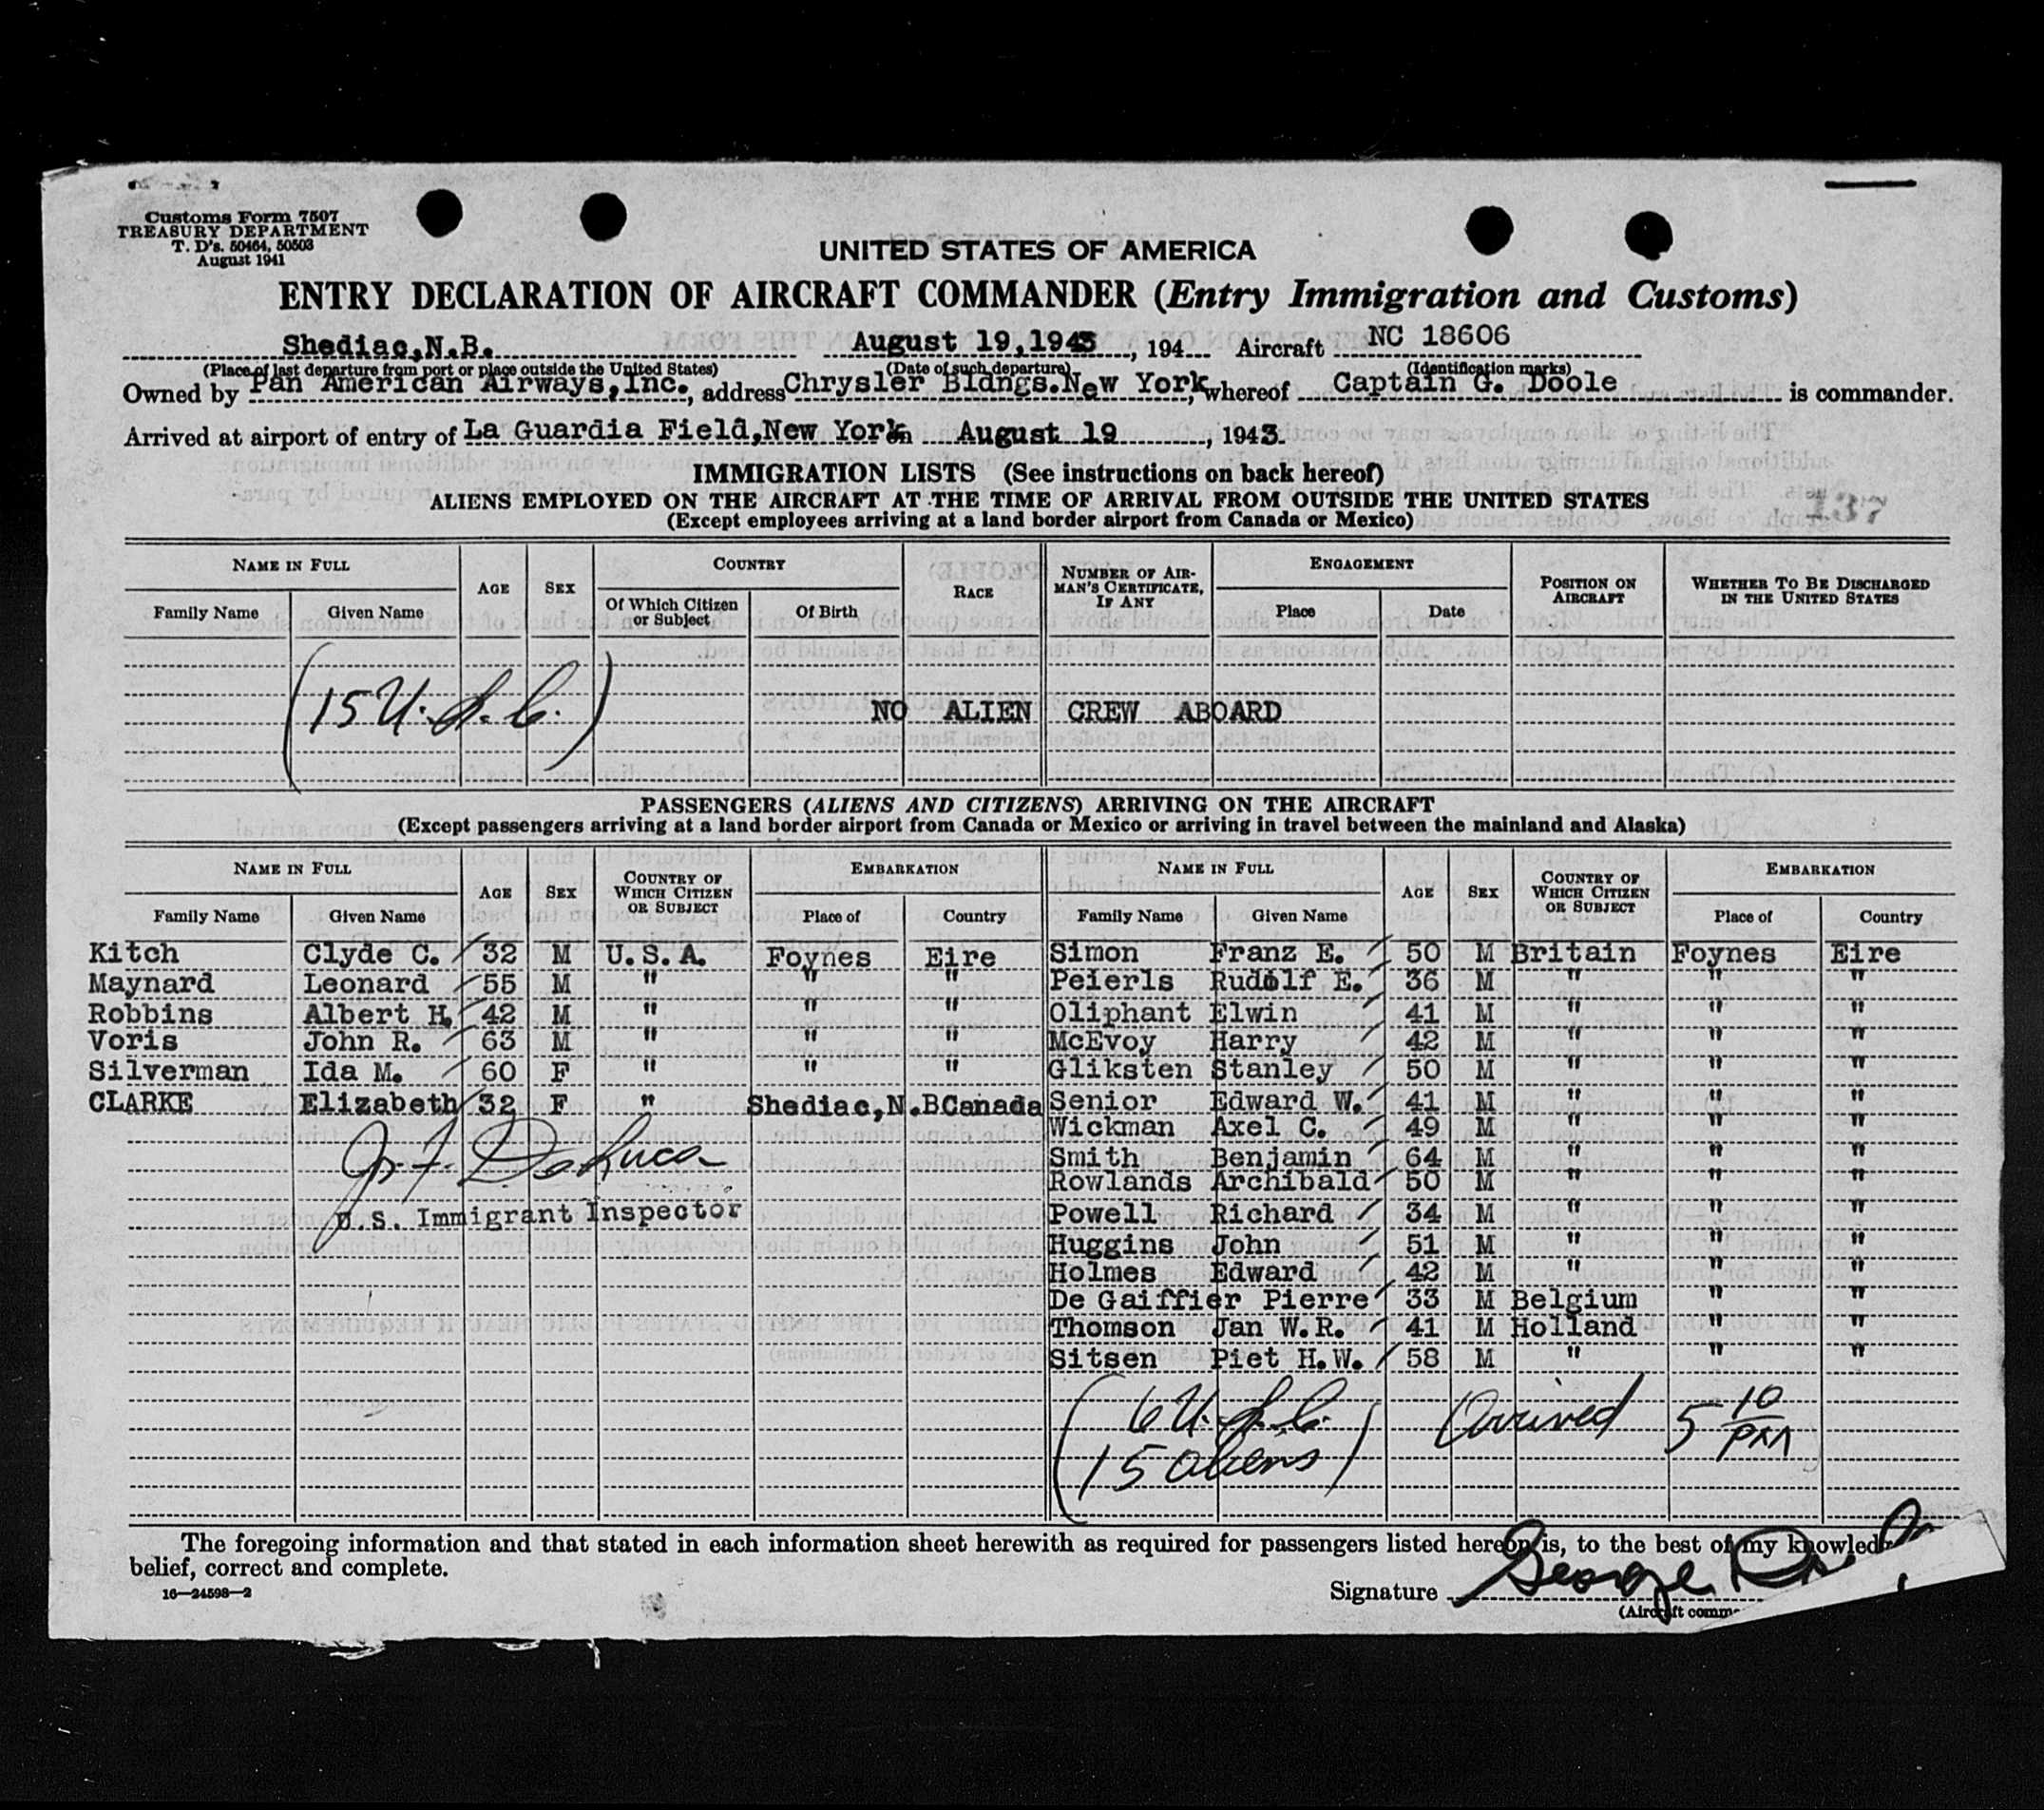 Customs Form 7507
TREASURY DEPARTMENT
T. D's. 50464, 50503
August 1941
UNITED STATES OF AMERICA
ENTRY DECLARATION OF AIRCRAFT COMMANDER (Entry Immigration and Customs)
Shediac,N.B. August 19,1943, 194 Aircraft NC 18606
(Place of last departure from port or place outside the United States) (Date of such departure) (Identification marks)
Owned by Pan American Airways,Inc., address Chrysler Bldngs.New York, whereof Captain G. Doole is commander.
Arrived at airport of entry of La Guardia Field,New York on August 19, 1943.
IMMIGRATION LISTS (See instructions on back hereof)
ALIENS EMPLOYED ON THE AIRCRAFT AT THE TIME OF ARRIVAL FROM OUTSIDE THE UNITED STATES
(Except employees arriving at a land border airport from Canada or Mexico)
137
NAME IN FULL AGE SEX COUNTRY RACE NUMBER OF AIRMAN'S CERTIFICATE, IF ANY ENGAGEMENT POSITION ON AIRCRAFT WHETHER TO BE DISCHARGED IN THE UNITED STATES
Family Name Given Name Of Which Citizen or Subject Of Birth Place Date
(15 U.S.C.) NO ALIEN CREW ABOARD
PASSENGERS (ALIENS AND CITIZENS) ARRIVING ON THE AIRCRAFT
(Except passengers arriving at a land border airport from Canada or Mexico or arriving in travel between the mainland and Alaska)
NAME IN FULL AGE SEX COUNTRY OF WHICH CITIZEN OR SUBJECT EMBARKATION NAME IN FULL AGE SEX COUNTRY OF WHICH CITIZEN OR SUBJECT EMBARKATION
Family Name Given Name Place of Country Family Name Given Name Place of Country
Kitch Clyde C. 32 M U.S.A. Foynes Eire Simon Franz E. 50 M Britain Foynes Eire
Maynard Leonard 55 M " " " Peierls Rudolf E. 36 M " " "
Robbins Albert H. 42 M " " " Oliphant Elwin 41 M " " "
Voris John R. 63 M " " " McEvoy Harry 42 M " " "
Silverman Ida M. 60 F " " " Gliksten Stanley 50 M " " "
CLARKE Elizabeth 32 F " Shediac,N.B Canada Senior Edward W. 41 M " " "
Wickman Axel C. 49 M " " "
J. F. DeLuca Smith Benjamin 64 M " " "
Rowlands Archibald 50 M " " "
U.S. Immigrant Inspector Powell Richard 34 M " " "
Huggins John 51 M " " "
Holmes Edward 42 M " " "
De Gaiffier Pierre 33 M Belgium " "
Thomson Jan W.R. 41 M Holland " "
Sitsen Piet H.W. 58 M " " "
(6 U.S.C. Arrived 5 10 PM
15 aliens)
The foregoing information and that stated in each information sheet herewith as required for passengers listed hereon is, to the best of my knowledge
belief, correct and complete.
16—24598—2
Signature George
(Aircraft comm